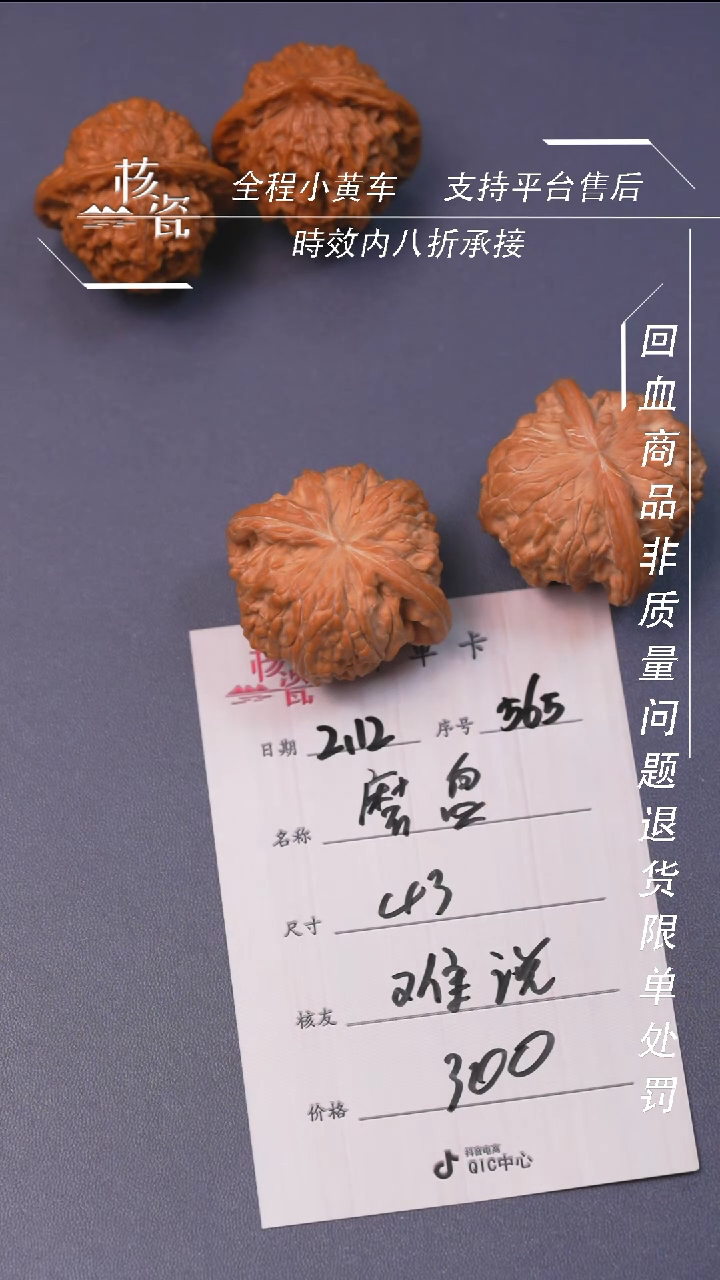 核瓷
全程小黄车 支持平台售后
時效内八折承接
回血商品非质量问题退货限单处罚
核瓷 单卡
日期 2.12 序号 565
名称 磨盘
尺寸 43
核友 难说
价格 300
抖音电商
QIC中心